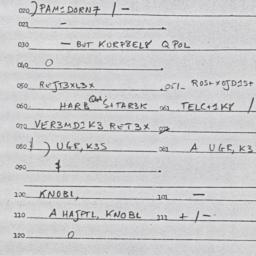 020 ) PAM=DORN7 / –
021 –
030 – BUT KURP8ELY QPOL
040 O
050 REJT3XL3X 051
060 HARB S+TAR3K 061 TELC+1KY /
070 VER3MD1K3 RET3X 072
080 ) UGR, K3S 081 A UGR, K3
090 $
100 KNOBL, 101 –
110 A HAJPTL, KNOBL 111 + / –
120 O